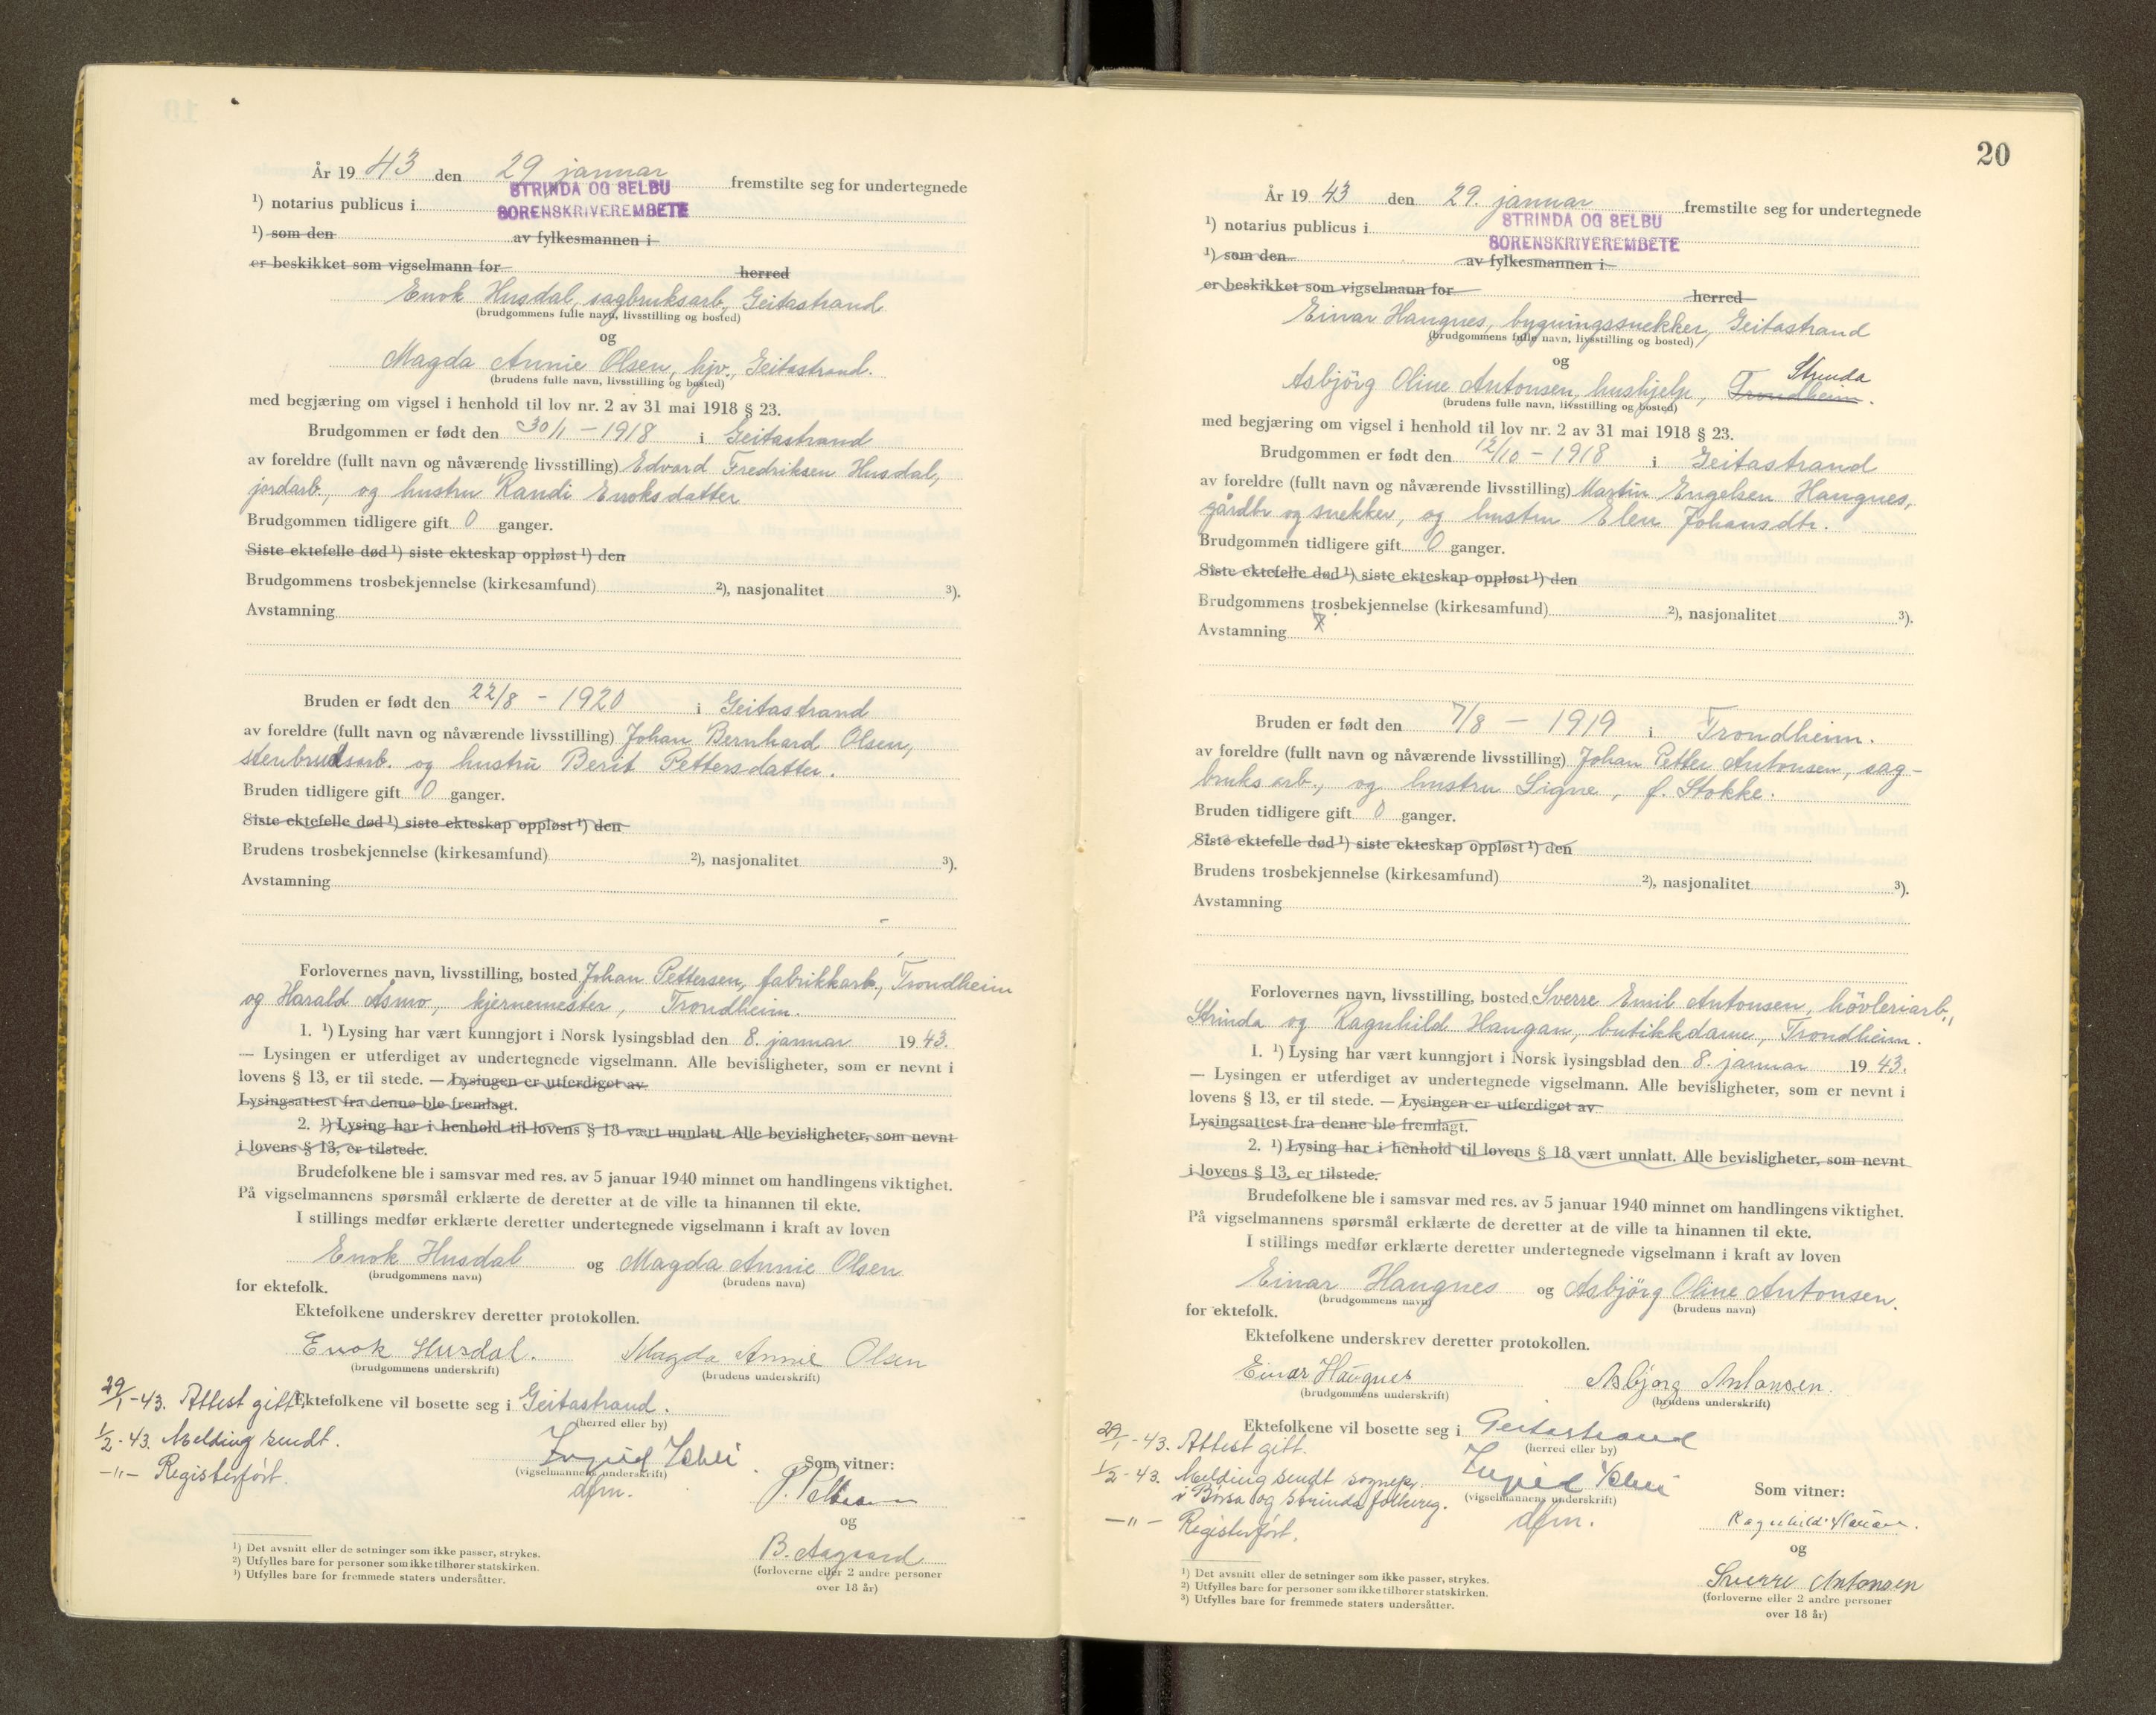 År 19 43 den 29 januar fremstilte seg for undertegnede
¹) notarius publicus i STRINDA OG SELBU
SORENSKRIVEREMBETE
¹) som den av fylkesmannen i
er beskikket som vigselmann for herred
Enok Husdal, sagbruksarb., Geitastrand
(brudgommens fulle navn, livsstilling og bosted)
og
Magda Annie Olsen, hjv., Geitastrand.
(brudens fulle navn, livsstilling og bosted)
med begjæring om vigsel i henhold til lov nr. 2 av 31 mai 1918 § 23.
Brudgommen er født den 30/1 - 1918 i Geitastrand
av foreldre (fullt navn og nåværende livsstilling) Edvard Fredriksen Husdal,
jordarb., og hustru Randi Enoksdatter
Brudgommen tidligere gift 0 ganger.
Siste ektefelle død ¹) siste ekteskap oppløst ¹) den
Brudgommens trosbekjennelse (kirkesamfund) ²), nasjonalitet ³).
Avstamning
Bruden er født den 22/8 - 1920 i Geitastrand
av foreldre (fullt navn og nåværende livsstilling) Johan Bernhard Olsen,
stenbruddsarb. og hustru Berit Pettersdatter.
Bruden tidligere gift 0 ganger.
Siste ektefelle død ¹) siste ekteskap oppløst ¹) den
Brudens trosbekjennelse (kirkesamfund) ²), nasjonalitet ³).
Avstamning
Forlovernes navn, livsstilling, bosted Johan Pettersen, fabrikkarb., Trondheim
og Harald Åsmo, kjernemester, Trondheim.
1. ¹) Lysing har vært kunngjort i Norsk lysingsblad den 8. januar 19 43.
— Lysingen er utferdiget av undertegnede vigselmann. Alle bevisligheter, som er nevnt i
lovens § 13, er til stede. — Lysingen er utferdiget av
Lysingsattest fra denne ble fremlagt.
2. ¹) Lysing har i henhold til lovens § 18 vært unnlatt. Alle bevisligheter, som nevnt
i lovens § 13, er tilstede.
Brudefolkene ble i samsvar med res. av 5 januar 1940 minnet om handlingens viktighet.
På vigselmannens spørsmål erklærte de deretter at de ville ta hinannen til ekte.
I stillings medfør erklærte deretter undertegnede vigselmann i kraft av loven
Enok Husdal og Magda Annie Olsen
(brudgommens navn) (brudens navn)
for ektefolk.
Ektefolkene underskrev deretter protokollen.
Enok Husdal. Magda Annie Olsen
(brudgommens underskrift) (brudens underskrift)
29/1-43. Attest gitt. Ektefolkene vil bosette seg i Geitastrand.
(herred eller by)
1/2-43. Melding sendt.
(vigselmannens underskrift) Som vitner:
-"- Registerført. dfm.
og
B. Aagaard
(forloverne eller 2 andre personer
over 18 år)
¹) Det avsnitt eller de setninger som ikke passer, strykes.
²) Utfylles bare for personer som ikke tilhører statskirken.
³) Utfylles bare for fremmede staters undersåtter.
20
År 19 43 den 29. januar fremstilte seg for undertegnede
¹) notarius publicus i STRINDA OG SELBU
SORENSKRIVEREMBETE
¹) som den av fylkesmannen i
er beskikket som vigselmann for herred
Einar Haugnes, bygningssnekker, Geitastrand
(brudgommens fulle navn, livsstilling og bosted)
og
Strinda
Asbjörg Oline Antonsen, hushjelp, Trondheim.
(brudens fulle navn, livsstilling og bosted)
med begjæring om vigsel i henhold til lov nr. 2 av 31 mai 1918 § 23.
Brudgommen er født den 12/10 - 1918 i Geitastrand
av foreldre (fullt navn og nåværende livsstilling) Martin Engelsen Haugnes,
gårdbr og snekker, og hustru Elen Johansdtr.
Brudgommen tidligere gift 0 ganger.
Siste ektefelle død ¹) siste ekteskap oppløst ¹) den
Brudgommens trosbekjennelse (kirkesamfund) ²), nasjonalitet ³).
Avstamning
Bruden er født den 7/8 - 1919 i Trondheim.
av foreldre (fullt navn og nåværende livsstilling) Johan Petter Antonsen, sag-
bruksarb., og hustru Signe, f. Stokke.
Bruden tidligere gift 0 ganger.
Siste ektefelle død ¹) siste ekteskap oppløst ¹) den
Brudens trosbekjennelse (kirkesamfund) ²), nasjonalitet ³).
Avstamning
Forlovernes navn, livsstilling, bosted Sverre Emil Antonsen, hövleriarb.,
Strinda og Ragnhild Haugan, butikkdame, Trondheim.
1. ¹) Lysing har vært kunngjort i Norsk lysingsblad den 8. januar 19 43.
— Lysingen er utferdiget av undertegnede vigselmann. Alle bevisligheter, som er nevnt i
lovens § 13, er til stede. — Lysingen er utferdiget av
Lysingsattest fra denne ble fremlagt.
2. ¹) Lysing har i henhold til lovens § 18 vært unnlatt. Alle bevisligheter, som nevnt
i lovens § 13, er tilstede.
Brudefolkene ble i samsvar med res. av 5 januar 1940 minnet om handlingens viktighet.
På vigselmannens spørsmål erklærte de deretter at de ville ta hinannen til ekte.
I stillings medfør erklærte deretter undertegnede vigselmann i kraft av loven
Einar Haugnes og Asbjörg Oline Antonsen.
(brudgommens navn) (brudens navn)
for ektefolk.
Ektefolkene underskrev deretter protokollen.
Einar Haugnes Asbjørg Antonsen.
(brudgommens underskrift) (brudens underskrift)
Ektefolkene vil bosette seg i Geitastrand
(herred eller by)
29/1-43. Attest gitt.
1/2-43. Melding sendt sognepr.
i Börsa og Strinda folkereg. (vigselmannens underskrift) Som vitner:
-"- Registerført. dfm. Ragnhild Haugan.
og
Sverre Antonsen
(forloverne eller 2 andre personer
over 18 år)
¹) Det avsnitt eller de setninger som ikke passer, strykes.
²) Utfylles bare for personer som ikke tilhører statskirken.
³) Utfylles bare for fremmede staters undersåtter.